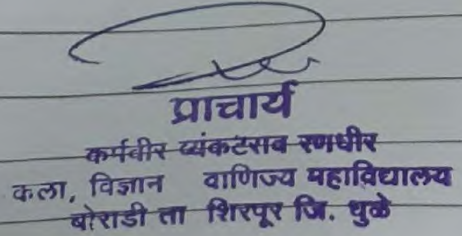 प्राचार्य
कर्मवीर व्यंकटराव रणधीर
कला, विज्ञान वाणिज्य महाविद्यालय
बोराडी ता शिरपूर जि. धुळे